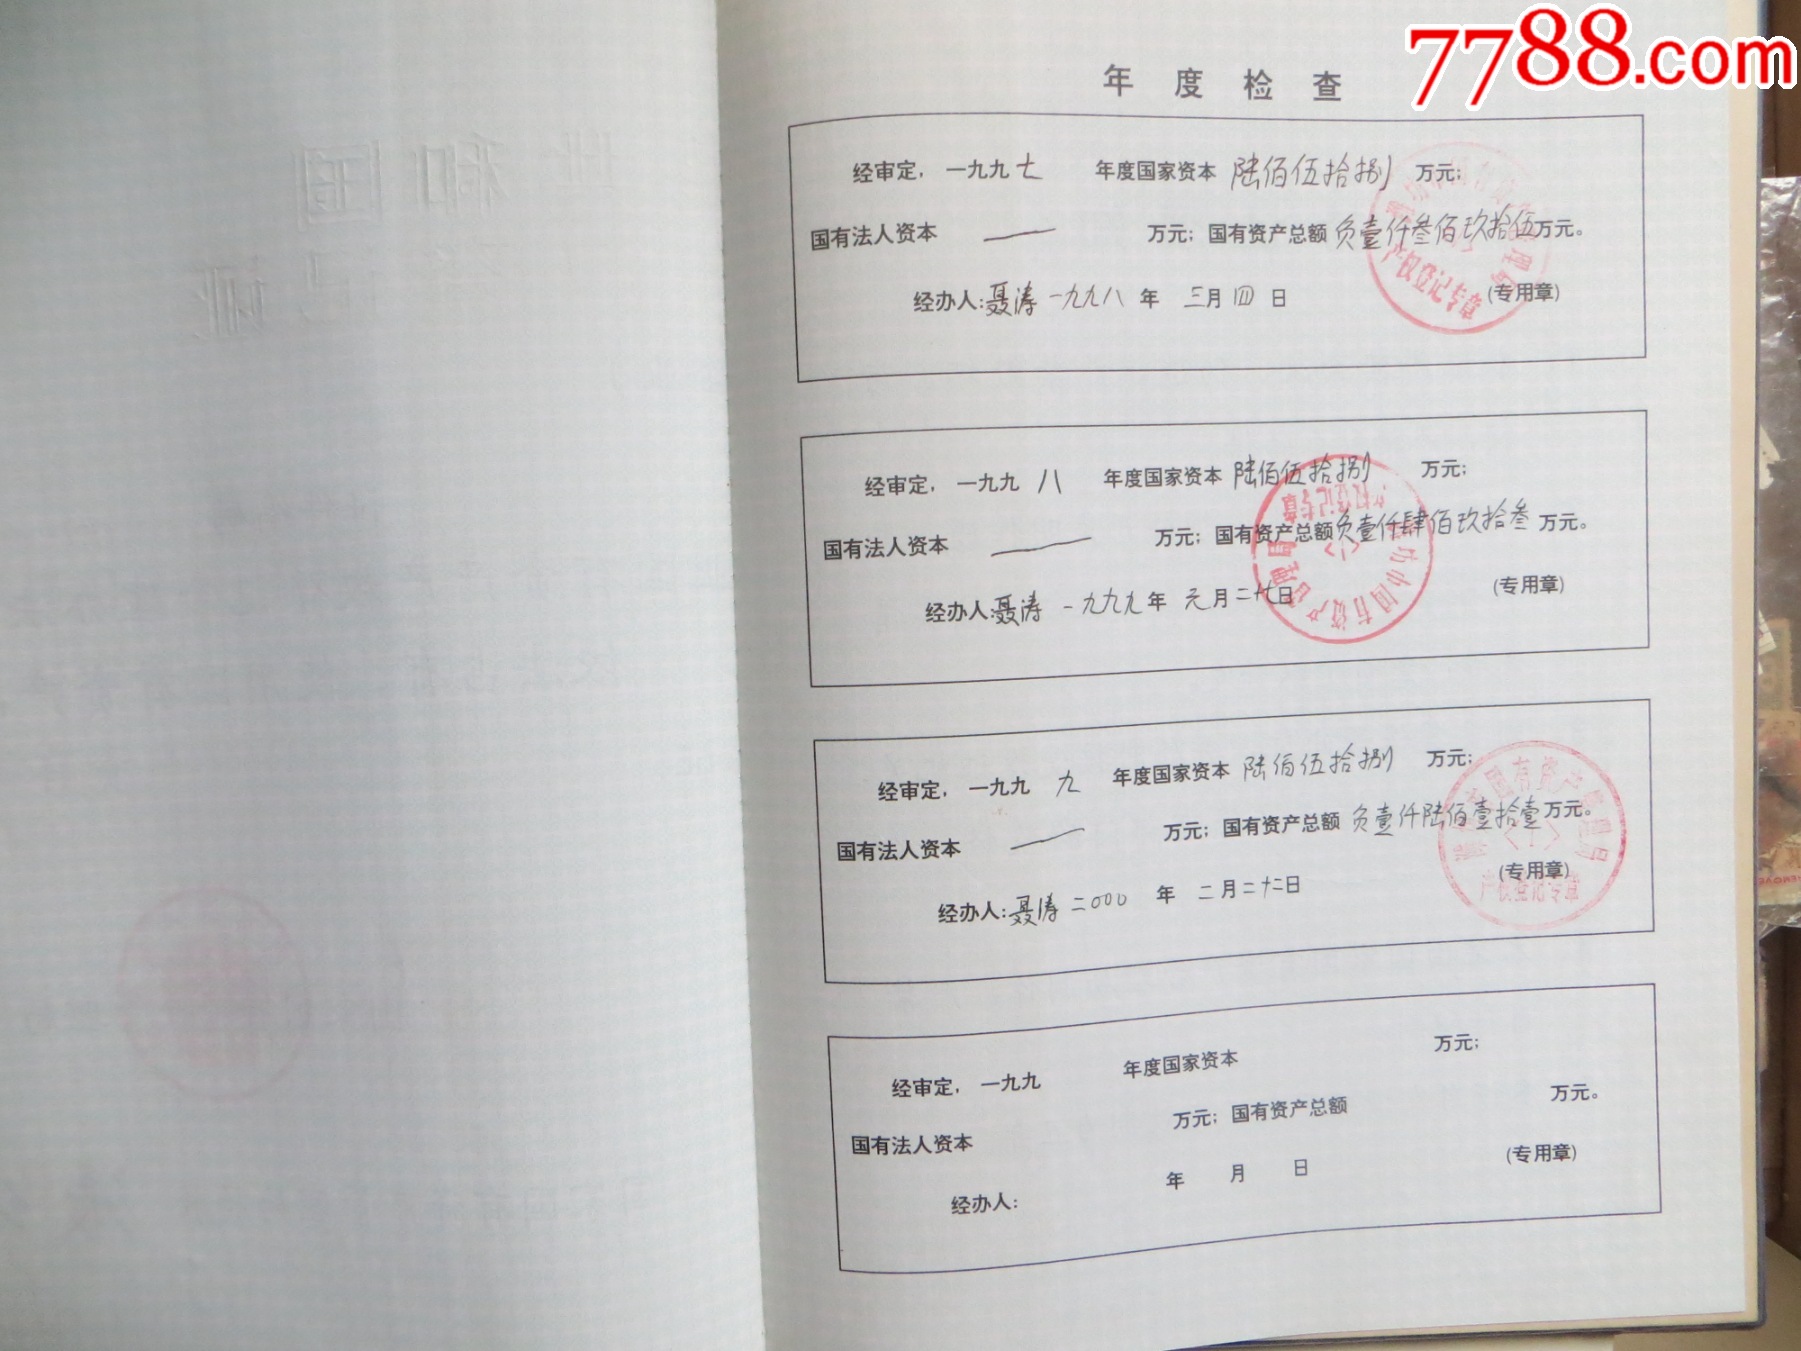 7788.com
年度检查
经审定，一九九七年度国家资本陆佰伍拾捌万元；
国有法人资本 — 万元；国有资产总额负壹仟叁佰玖拾伍万元。
经办人：聂涛 一九九八年三月四日 (专用章)
产权登记专章
经审定，一九九八年度国家资本陆佰伍拾捌万元；
国有法人资本 — 万元；国有资产总额负壹仟肆佰玖拾叁万元。
经办人：聂涛 一九九九年元月二十七日 (专用章)
产权登记专章
经审定，一九九九年度国家资本陆佰伍拾捌万元；
国有法人资本 — 万元；国有资产总额负壹仟陆佰壹拾壹万元。
经办人：聂涛 二000年二月二十二日 (专用章)
国有资产管理局
产权登记专章
经审定，一九九 年度国家资本 万元；
国有法人资本 万元；国有资产总额 万元。
经办人： 年 月 日 (专用章)